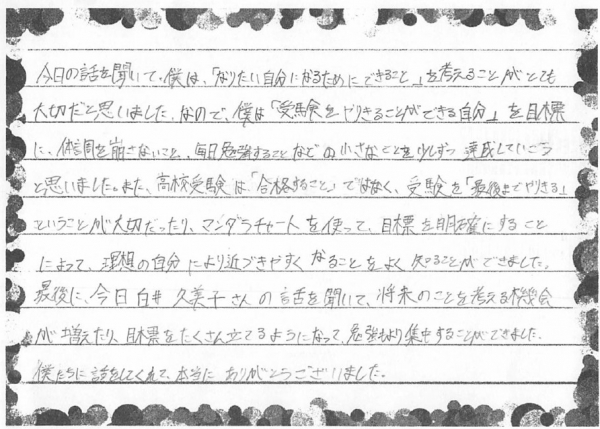 今日の話を聞いて、僕は、「なりたい自分になるためにできること」を考えることがとても
大切だと思いました。なので、僕は「受験をやりきることができる自分」を目標
に、体調を崩さないこと、毎日勉強することなどの小さなことを少しずつ達成していこう
と思いました。また、高校受験は「合格すること」ではなく、受験を「最後までやりきる」
ということが大切だったり、マンダラチャートを使って、目標を明確にすること
によって、理想の自分により近づきやすくなることをよく知ることができました。
最後に、今日白井久美子さんの話を聞いて、将来のことを考える機会
が増えたり、目標をたくさん立てるようになって、勉強もより集中することができました。
僕たちに話をしてくれて、本当にありがとうございました。